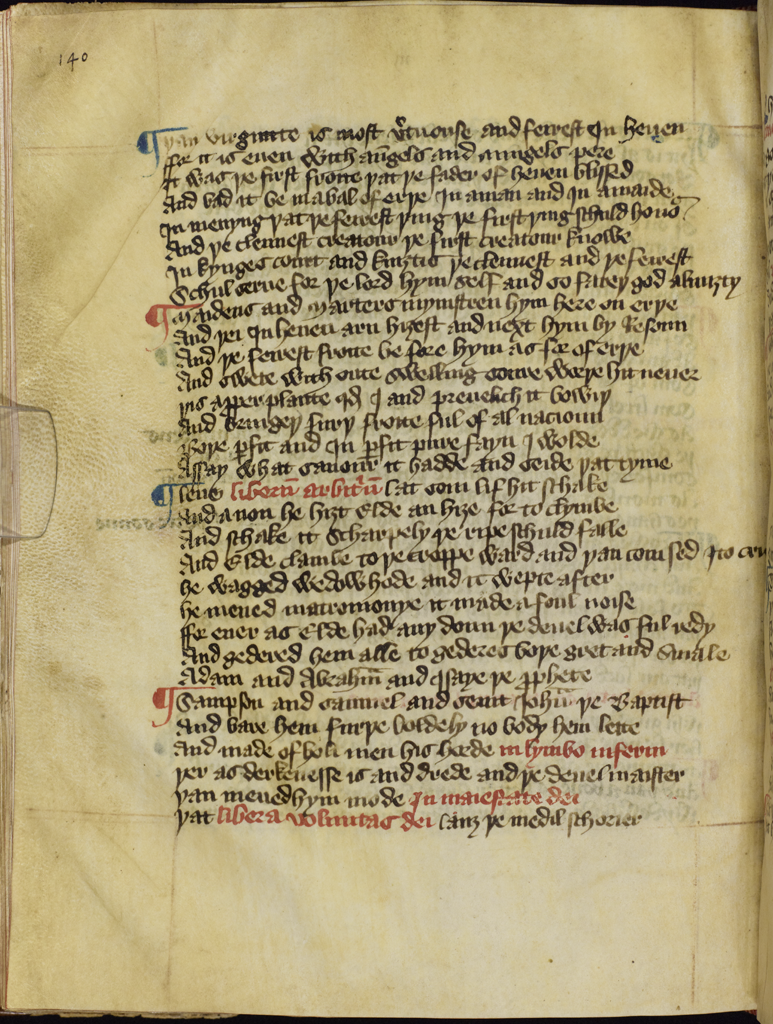 140
Þan virginite is most vertuouse and feirest in heuen
ffor it is euen with aungels and aungels pere
It was þe first froite þat þe fader of heuen blissed
And bad it be in a bal of erþe in a man and in a maide
In menyng þat þe feirest þing þe first þing schuld hono
And þe clennest creatour þe first creatour knowe
In kynges court and knyztis þe clennest and þe feirest
Schul serue for þe lord hym self and so fareþ god almizty
Maidens and Marters mynistren hym here on erþe
And þei in heuen arn hizest and next hym by Resoun
And þe feirest froite be fore hym as for of erþe
And swete with oute swelling soure worþe hit neuer
Þis apper plante qd I and preuelich it bowiþ
And bringeþ furþ froite ful of al nacioun
Boþe pfit and in pfit pure fayn I wolde
Assay what sauour it hadde and seide þat tyme
Leue liberum arbitrium lat som lif hit schake
And anon he hizt Elde an hize for to clymbe
And schake it scharpely þe ripe schuld falle
And Elde clambe to þe croppe ward and þan comsed it to cri
he wagged wedowhode and it wepte after
he meued matromonye it made a foul noise
ffor euer as Elde had any doun þe deuel was ful redy
And gedered hem alle to gederes boþe gret and smale
Adam and Abraham and Isaye þe prophete
Sampson and samuel and seint Iohn þe Baptist
And bare hem furþe boldely no body hem lette
And made of holi men his horde in lymbo inferni
Þer as derkenesse is and drede and þe deuel maister
Þan meued hym mode in maiestate dei
Þat libera voluntas dei lauz þe medil schorier